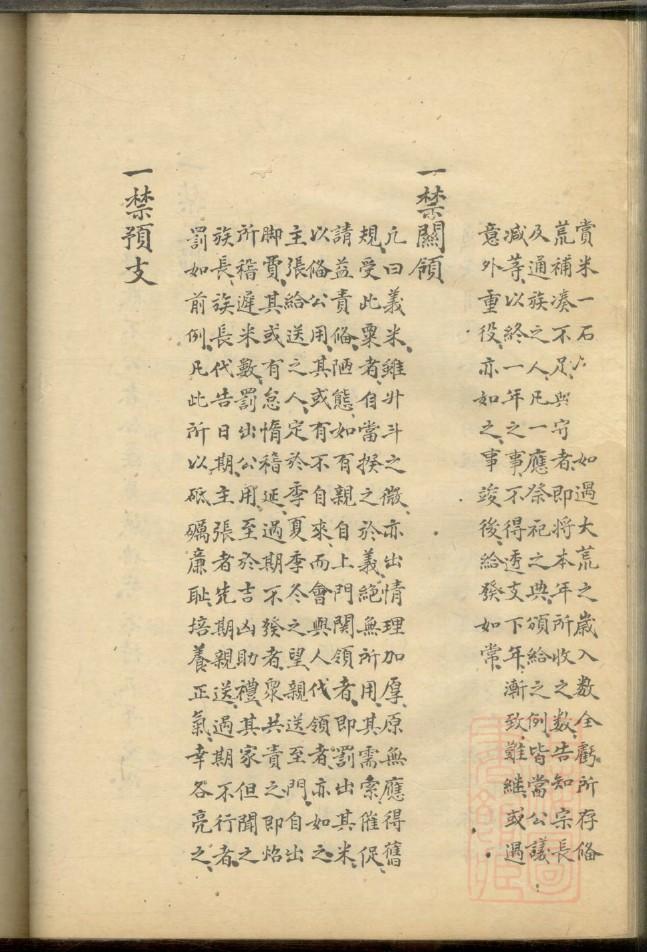 賞米一石六 如過大荒之歲入数全虧所存俻
荒補凑不足與守者即将本年所收之数告知宗長
及通族之人凡一應祭祀之典頒給之例皆當公議
减等以終一年之事不得透支下年漸致難繼或遇
意外重役亦如之事竣後給發如常
一禁關領
凢曰義米雖升斗之微亦出情理加厚原無應得舊
規受此粟者自當揆之於義絕無所用其需索催促
請益責俻陋態如有親自上門関領者即罰出其米
以俻公用其或有不自來而會與人代領者亦如之
主張給送之人定於季夏季冬之望親送至門自出
脚賈其或有怠惰稽延過期不發者衆共責之即炤
所稽遲米數罰出公用至於吉凶助禮其家但聞之
族長族長代告日期主張者先期親送過期不行者
罰如前例凡此所以砥礪廉恥培養正氣幸各亮之
一禁預支